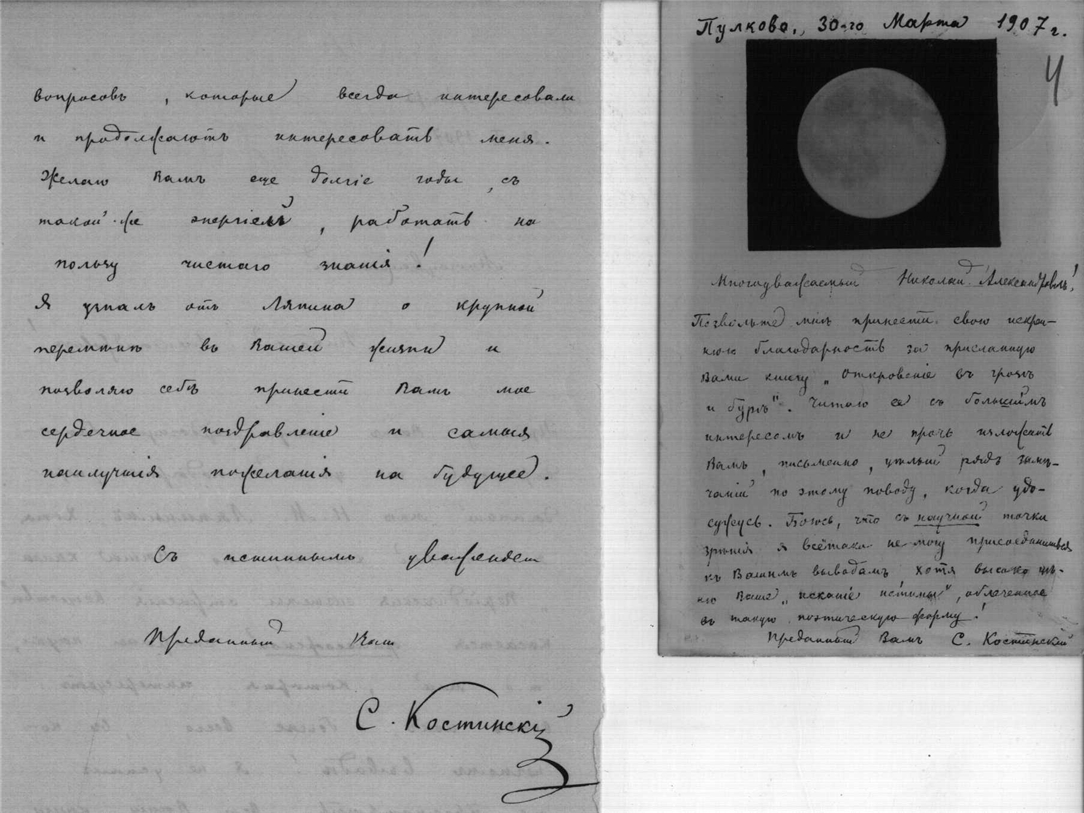 вопросовъ, которые всегда интересовали
и продолжаютъ интересовать меня.
Желаю Вамъ еще долгіе годы, съ
такой-же энергіей, работать на
пользу чистаго знанія!
Я узналъ отъ Ляпина о крупной
перемѣнѣ въ Вашей жизни и
позволяю себѣ принести Вамъ мое
сердечное поздравленіе и самыя
наилучшія пожеланія на будущее.
Съ истиннымъ уваженіемъ
Преданный Вамъ
С. Костинскій
Пулково, 30-го Марта 1907 г.
4
Многоуважаемый Николай Александровичъ!
Позвольте мнѣ принести свою искрен-
нюю благодарность за присланную
Вами книгу „Откровеніе въ грозѣ
и бурѣ". Читаю ее съ большимъ
интересомъ и не прочь изложить
Вамъ, письменно, цѣлый рядъ замѣ-
чаній по этому поводу, когда удо-
сужусь. Боюсь, что съ научной точки
зрѣнія я всётаки не могу присоединиться
къ Вашимъ выводамъ, хотя высоко цѣ-
ню Ваше „исканіе истины", облеченное
въ такую поэтическую форму!
Преданный Вамъ С. Костинскій